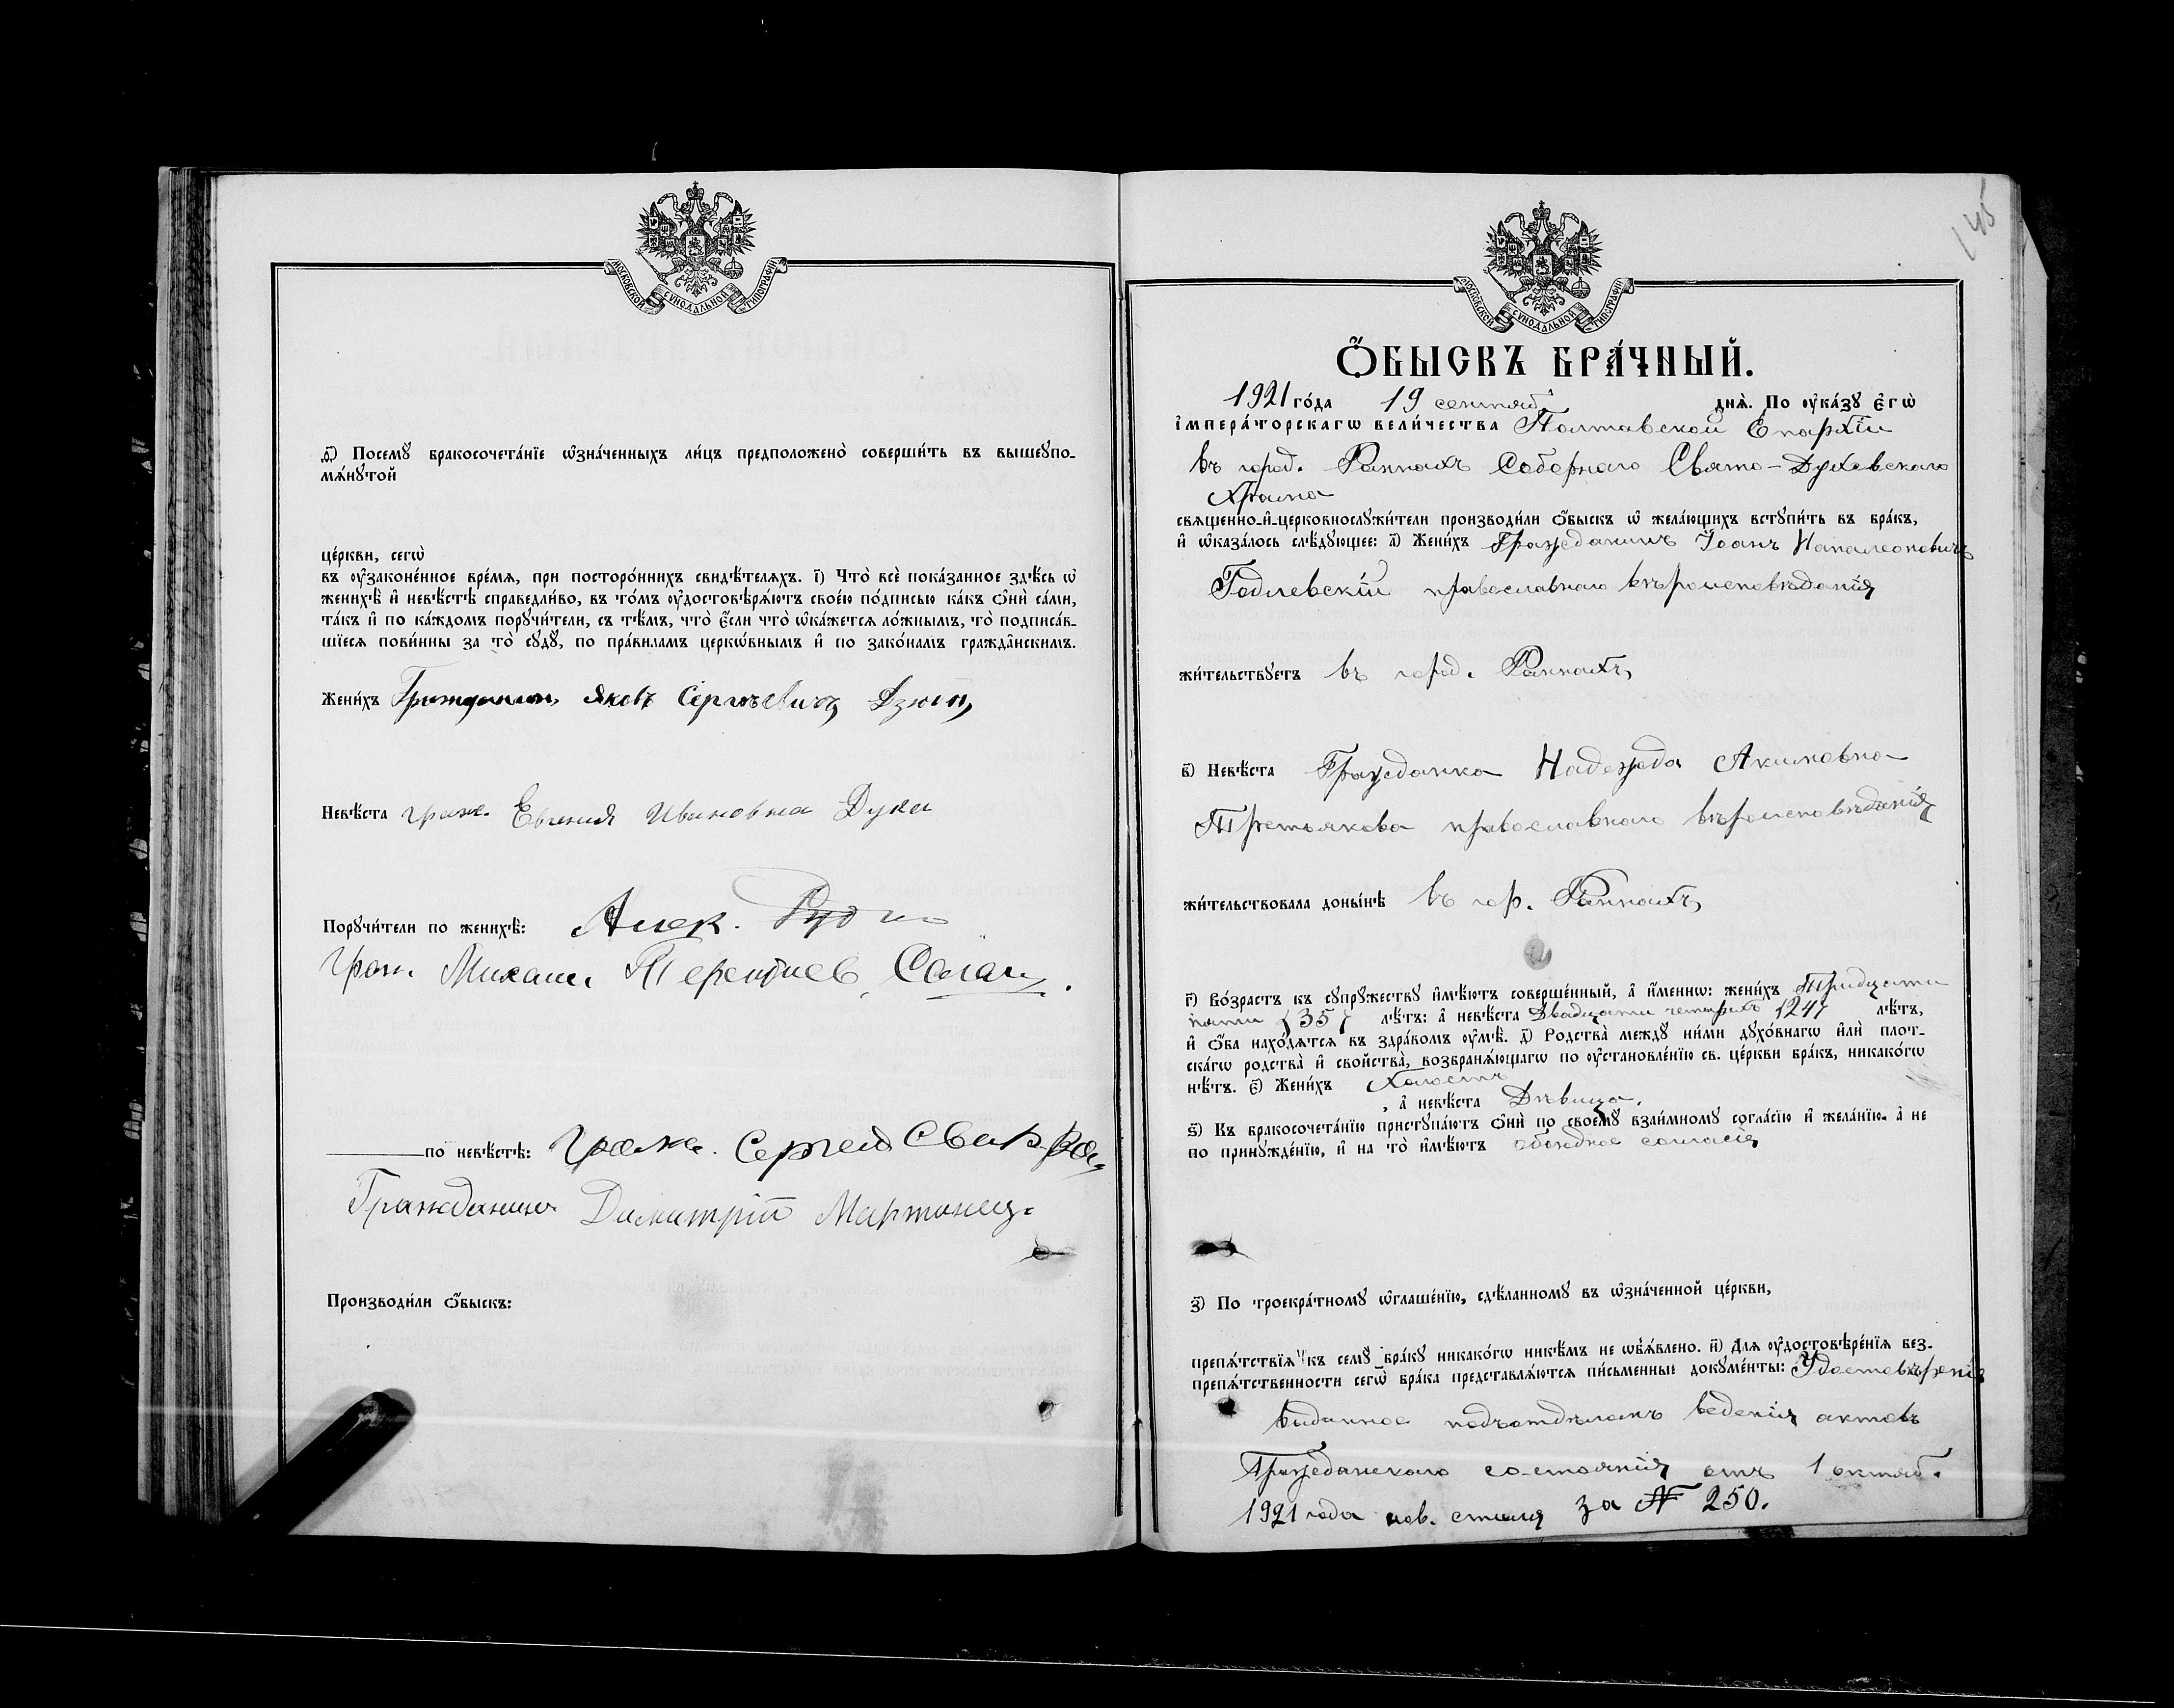 МОСКОВСКОЙ СѴНОДАЛЬНОЙ ТИПОГРАФІИ
д҃і) Посемꙋ̀ бракосочета́нїе ѡ҆зна́ченныхъ ли́цъ предположено̀ соверши́ть въ вышеꙋпо-
мѧ́нꙋтой
це́ркви, сегѡ̀
въ ᲂу҆зако́ненное вре́мѧ, при посторо́ннихъ свидѣ́телѧхъ. і҃) Что̀ всѐ пока́занное здѣ́сь ѡ҆
женихѣ̀ и҆ невѣ́стѣ справедли́во, въ то́мъ ᲂу҆достовѣрѧ́ютъ свое́ю по́дписью ка́къ ѻ҆нѝ са́ми,
та́къ и҆ по ка́ждомъ порꙋчи́тели, съ тѣ́мъ, что̀ є҆́сли что̀ ѡ҆ка́жетсѧ ло́жнымъ, то̀ подписа́в-
шїесѧ пови́нны за то̀ сꙋдꙋ̀, по пра́виламъ церкѡ́внымъ и҆ по зако́намъ гражда́нскимъ.
Жени́хъ Гражданин Яковъ Сергѣевичъ Дзюба
Невѣ́ста граж. Евгения Ивановна Дука
Порꙋчи́тели по женихѣ̀: Алек.
граж. Михаил Терентиев
по невѣ́стѣ: граж. Сергей
Гражданинъ Димитрій Мартинец
Производи́ли ѻ҆́быскъ:
145
МОСКОВСКОЙ СѴНОДАЛЬНОЙ ТИПОГРАФІИ
Ѻ҆́БЫСКЪ БРА́ЧНЫЙ.
1921 го́да 19 сентяб. днѧ̀. По ᲂу҆ка́зꙋ є҆гѡ̀
і҆мпера́торскагѡ вели́чества Полтавской Епархіи
въ город. Ромнахъ Соборного Свято-Духовского
Храма
свѧщенно-и҆-церковнослꙋжи́тели производи́ли ѻ҆́быскъ ѡ҆ жела́ющихъ встꙋпи́ть въ бра́къ,
и҆ ѡ҆каза́лось слѣ́дꙋющее: а҃) Жени́хъ Гражданинъ Іоанъ Напалеоновичъ
Годлевскій православного вѣроисповѣданія
жи́тельствꙋетъ въ город. Ромнахъ,
в҃) Невѣ́ста Гражданка Надежда Акимовна
Третьякова православного вѣроисповѣданія
жи́тельствовала доны́нѣ въ гор. Ромнахъ,
г҃) Во́зрастъ къ сꙋпрꙋ́жествꙋ и҆мѣ́ютъ соверше́нный, а҆ и҆́меннѡ: жени́хъ Тридцати
пяти (35) лѣ́тъ: а҆ невѣ́ста Двадцати четырехъ (24) лѣ́тъ,
и҆ ѻ҆́ба нахо́дѧтсѧ въ здра́вомъ ᲂу҆мѣ̀. д҃) Родства̀ междꙋ̀ ни́ми дꙋхо́внагѡ и҆лѝ плот-
ска́гѡ родства̀ и҆ свойства̀, возбранѧ́ющагѡ по ᲂу҆становле́нїю св. це́ркви бра́къ, никако́гѡ
нѣ́тъ. є҃) Жени́хъ Холостъ
, а҆ невѣ́ста Дѣвица.
ѕ҃) Къ бракосочета́нїю пристꙋпа́ютъ ѻ҆нѝ по своемꙋ̀ взаи́мномꙋ согла́сїю и҆ жела́нїю, а҆ не
по принꙋжде́нїю, и҆ на то̀ и҆мѣ́ютъ обоюдное согласіе
з҃) По троекра́тномꙋ ѡ҆глаше́нїю, сдѣ́ланномꙋ въ ѡ҆зна́ченной це́ркви,
препѧ́тствїѧ къ семꙋ̀ бра́кꙋ никако́гѡ никѣ́мъ не ѡ҆б̾ѧ́влено. и҃) Длѧ ᲂу҆достовѣре́нїѧ без-
препѧ́тственности сегѡ̀ бра́ка представлѧ́ютсѧ пи́сьменные докꙋме́нты: Удостовѣреніе
выданное подъотдѣломъ веденія актовъ
Гражданского состоянія отъ 1 октяб.
1921 года нов. стиля за № 250.